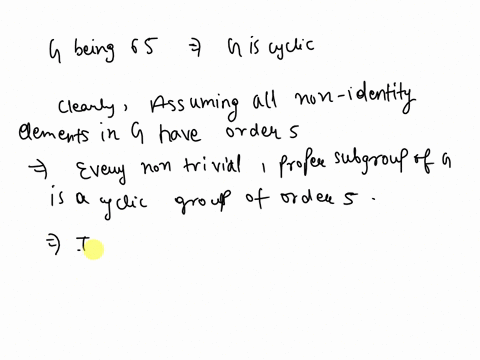 G being 65 ⇒ G is cyclic
Clearly, Assuming all non-identity
elements in G have order 5
⇒ Every non trivial, proper subgroup of G
is a cyclic group of order 5.
⇒ I